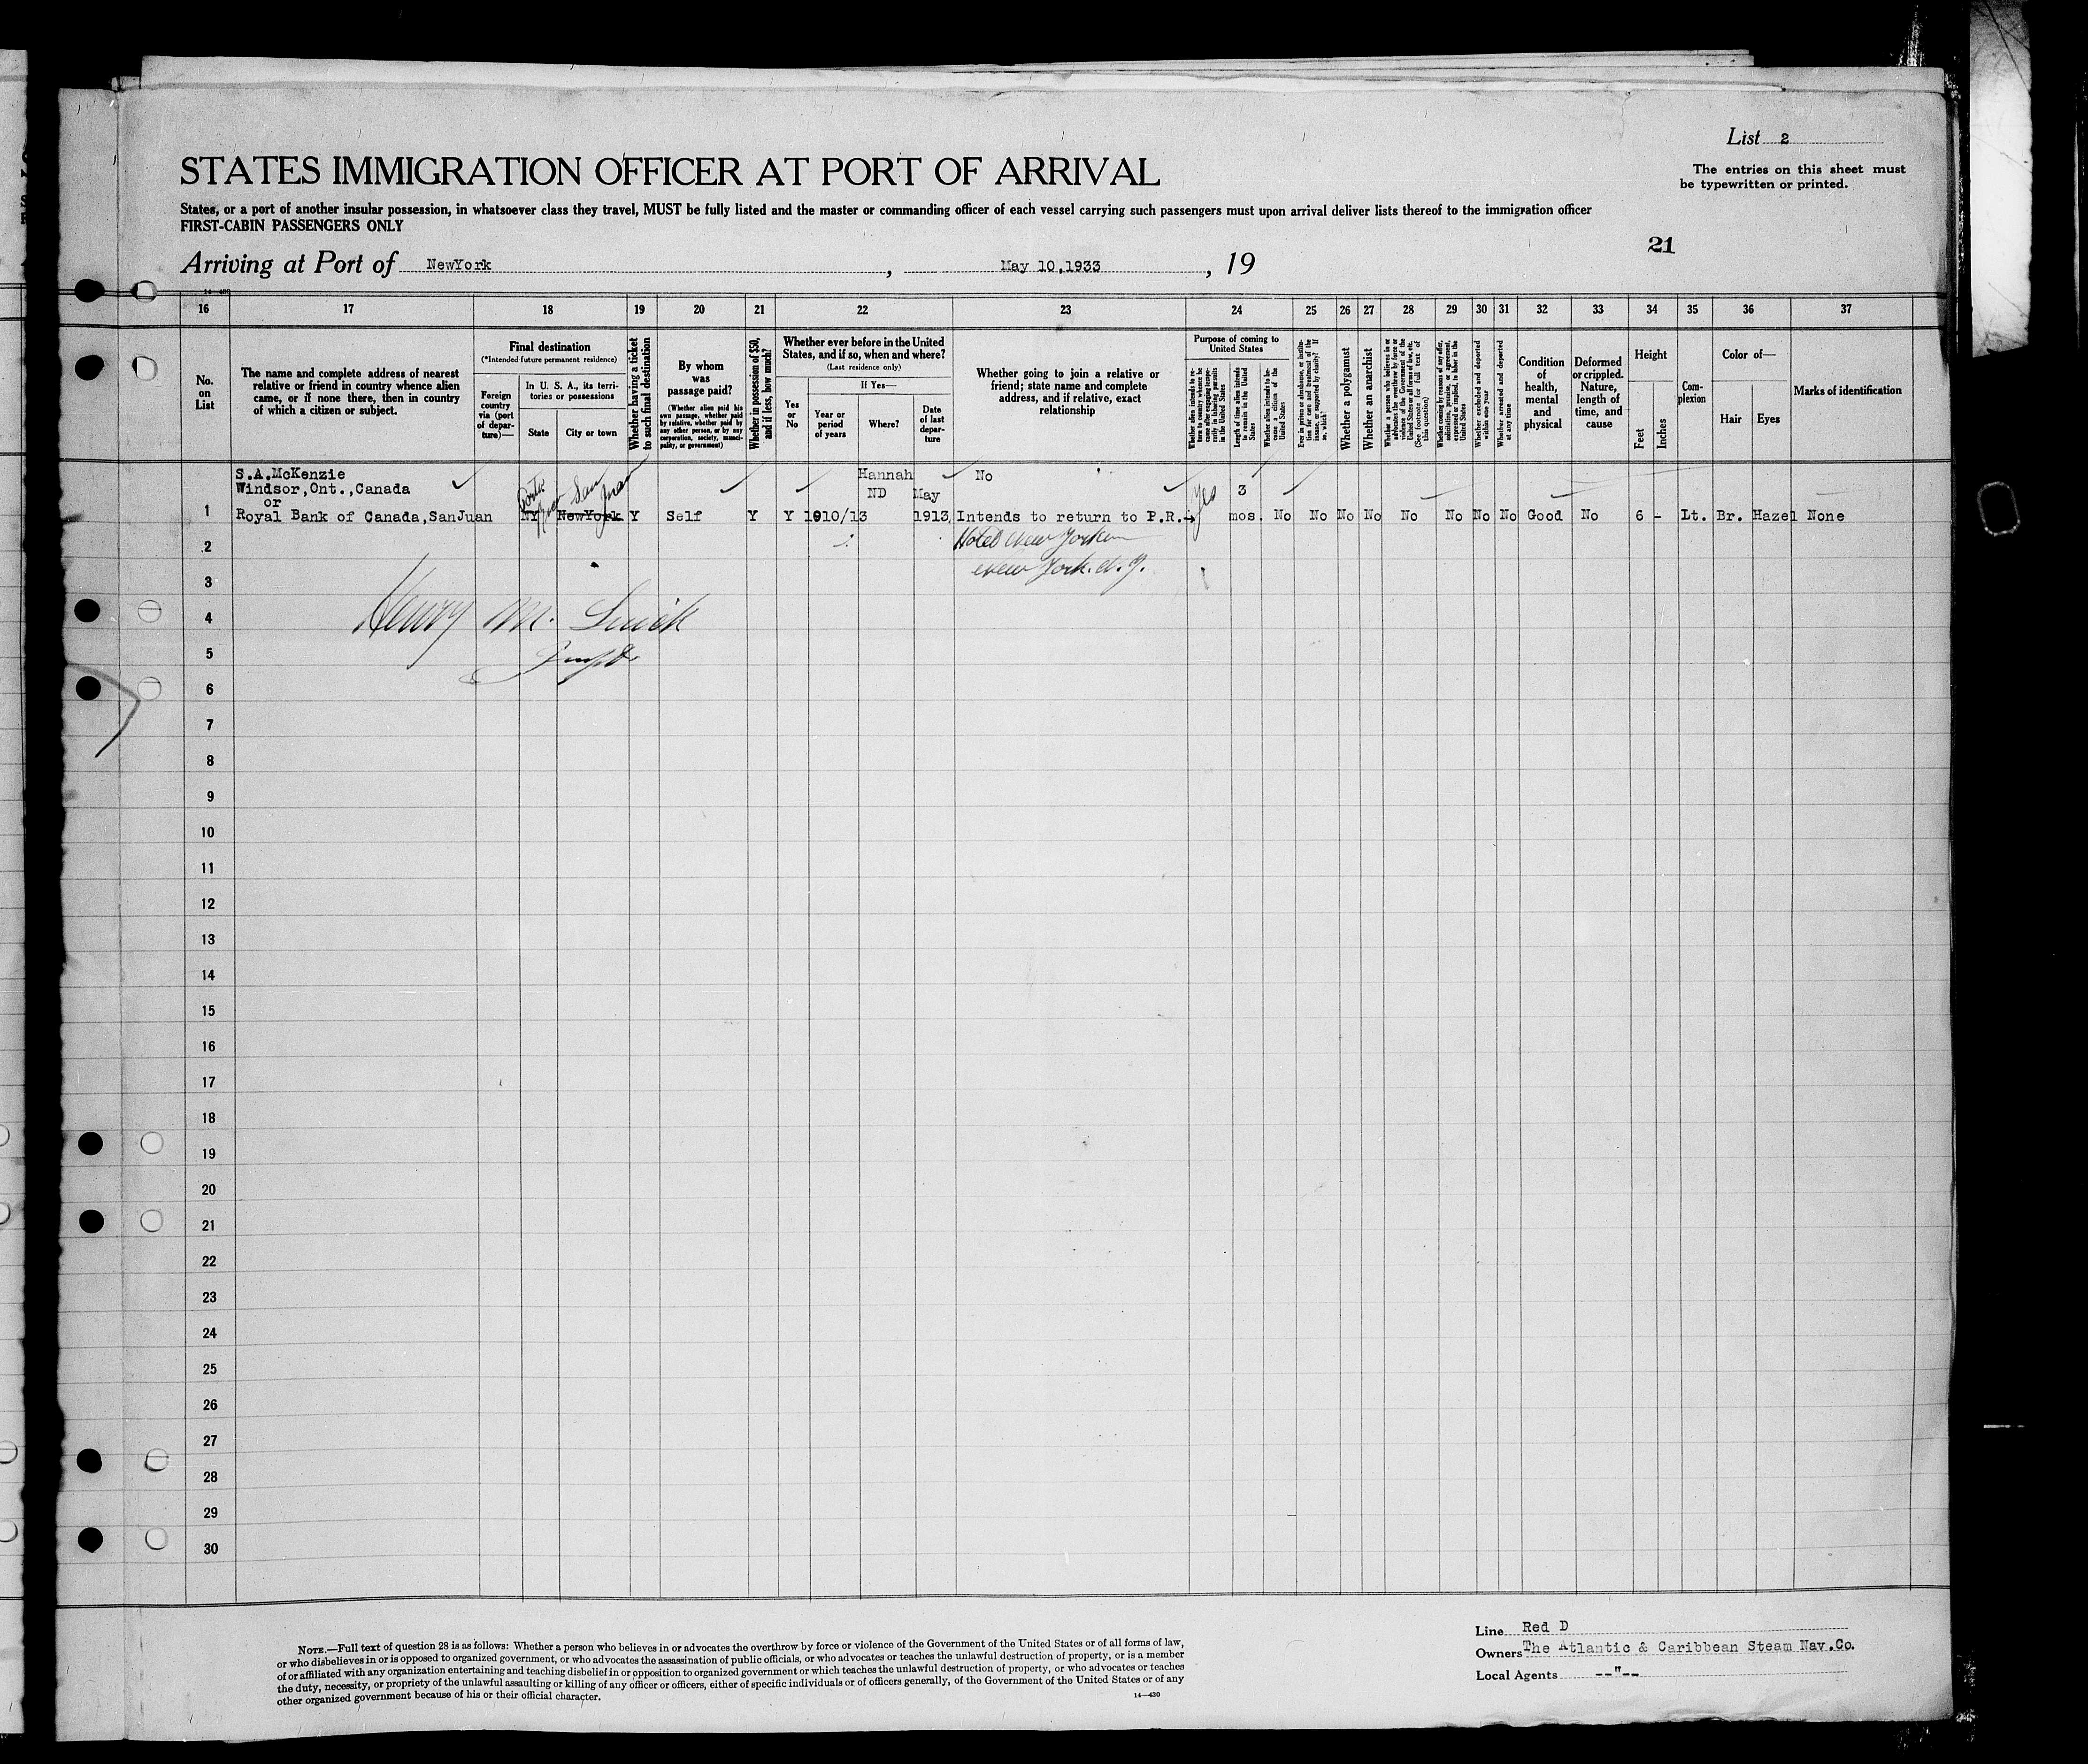 List 2
STATES IMMIGRATION OFFICER AT PORT OF ARRIVAL
The entries on this sheet must
be typewritten or printed.
States, or a port of another insular possession, in whatsoever class they travel, MUST be fully listed and the master or commanding officer of each vessel carrying such passengers must upon arrival deliver lists thereof to the immigration officer
FIRST-CABIN PASSENGERS ONLY
21
Arriving at Port of NewYork, May 10,1933, 19
14—430
16 17 18 19 20 21 22 23 24 25 26 27 28 29 30 31 32 33 34 35 36 37
No.
on
List
The name and complete address of nearest
relative or friend in country whence alien
came, or if none there, then in country
of which a citizen or subject.
Final destination
(*Intended future permanent residence)
Foreign
country
via (port
of depar-
ture)—
In U. S. A., its terri-
tories or possessions
State
City or town
Whether having a ticket
to such final destination
By whom
was
passage paid?
(Whether alien paid his
own passage, whether paid
by relative, whether paid by
any other person, or by any
corporation, society, munici-
pality, or government)
Whether in possession of $50,
and if less, how much?
Whether ever before in the United
States, and if so, when and where?
(Last residence only)
Yes
or
No
If Yes—
Year or
period
of years
Where?
Date
of last
depar-
ture
Whether going to join a relative or
friend; state name and complete
address, and if relative, exact
relationship
Purpose of coming to
United States
Whether alien intends to re-
turn to country whence he
came after engaging tempo-
rarily in laboring pursuits
in the United States
Length of time alien intends
to remain in the United
States
Whether alien intends to be-
come a citizen of the
United States
Ever in prison or almshouse, or institu-
tion for care and treatment of the
insane, or supported by charity? If
so, which?
Whether a polygamist
Whether an anarchist
Whether a person who believes in or
advocates the overthrow by force or
violence of the Government of the
United States or all forms of law, etc.
(See footnote for full text of
this question)
Whether coming by reasons of any offer,
solicitation, promise, or agreement,
expressed or implied, to labor in the
United States
Whether excluded and deported
within one year
Whether arrested and deported
at any time
Condition
of
health,
mental
and
physical
Deformed
or crippled.
Nature,
length of
time, and
cause
Height
Feet
Inches
Com-
plexion
Color of—
Hair
Eyes
Marks of identification
S.A.McKenzie
Windsor,Ont.,Canada
or
1 Royal Bank of Canada,SanJuan
Porto
Rico
San
Juan
NY NewYork Y Self Y Y 1910/13
Hannah
ND
May
1913
No
Intends to return to P.R.
Yes
3
mos. No No No No No No No No Good No 6 - Lt. Br. Hazel None
2 Hotel New Yorker
3 New York. N. Y.
4 Henry M.
5
6
7
8
9
10
11
12
13
14
15
16
17
18
19
20
21
22
23
24
25
26
27
28
29
30
NOTE.—Full text of question 28 is as follows: Whether a person who believes in or advocates the overthrow by force or violence of the Government of the United States or of all forms of law,
or who disbelieves in or is opposed to organized government, or who advocates the assassination of public officials, or who advocates or teaches the unlawful destruction of property, or is a member
of or affiliated with any organization entertaining and teaching disbelief in or opposition to organized government or which teaches the unlawful destruction of property, or who advocates or teaches
the duty, necessity, or propriety of the unlawful assaulting or killing of any officer or officers, either of specific individuals or of officers generally, of the Government of the United States or of any
other organized government because of his or their official character.
14—430
Line Red D
Owners The Atlantic & Caribbean Steam Nav.Co.
Local Agents --"--